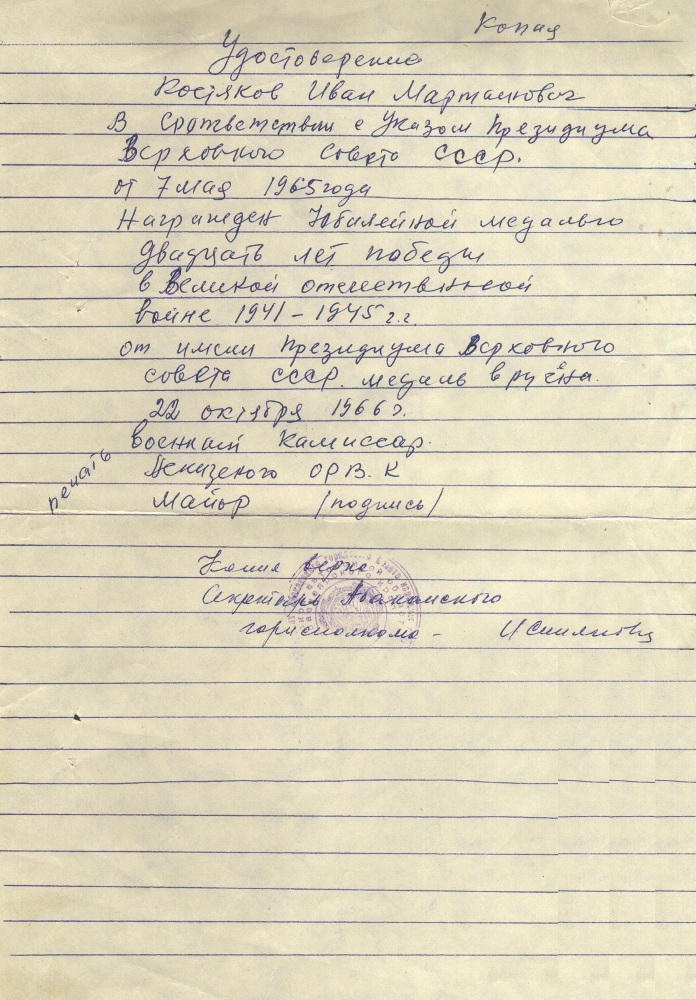 Копия
Удостоверение
Костяков Иван Мартынович
В Соответствии с Указом Президиума
Верховного Совета СССР.
от 7 мая 1965 года
Награжден Юбилейной медалью
Двадцать лет победы
в Великой отечественной
войне 1941-1945 г.г.
от имени Президиума Верховного
совета СССР. медаль вручена.
22 октября 1966 г.
военный Камиссар.
ОРВ.К
печать
Майор /подпись/
Копия верна
Секретарь
горисполкома -